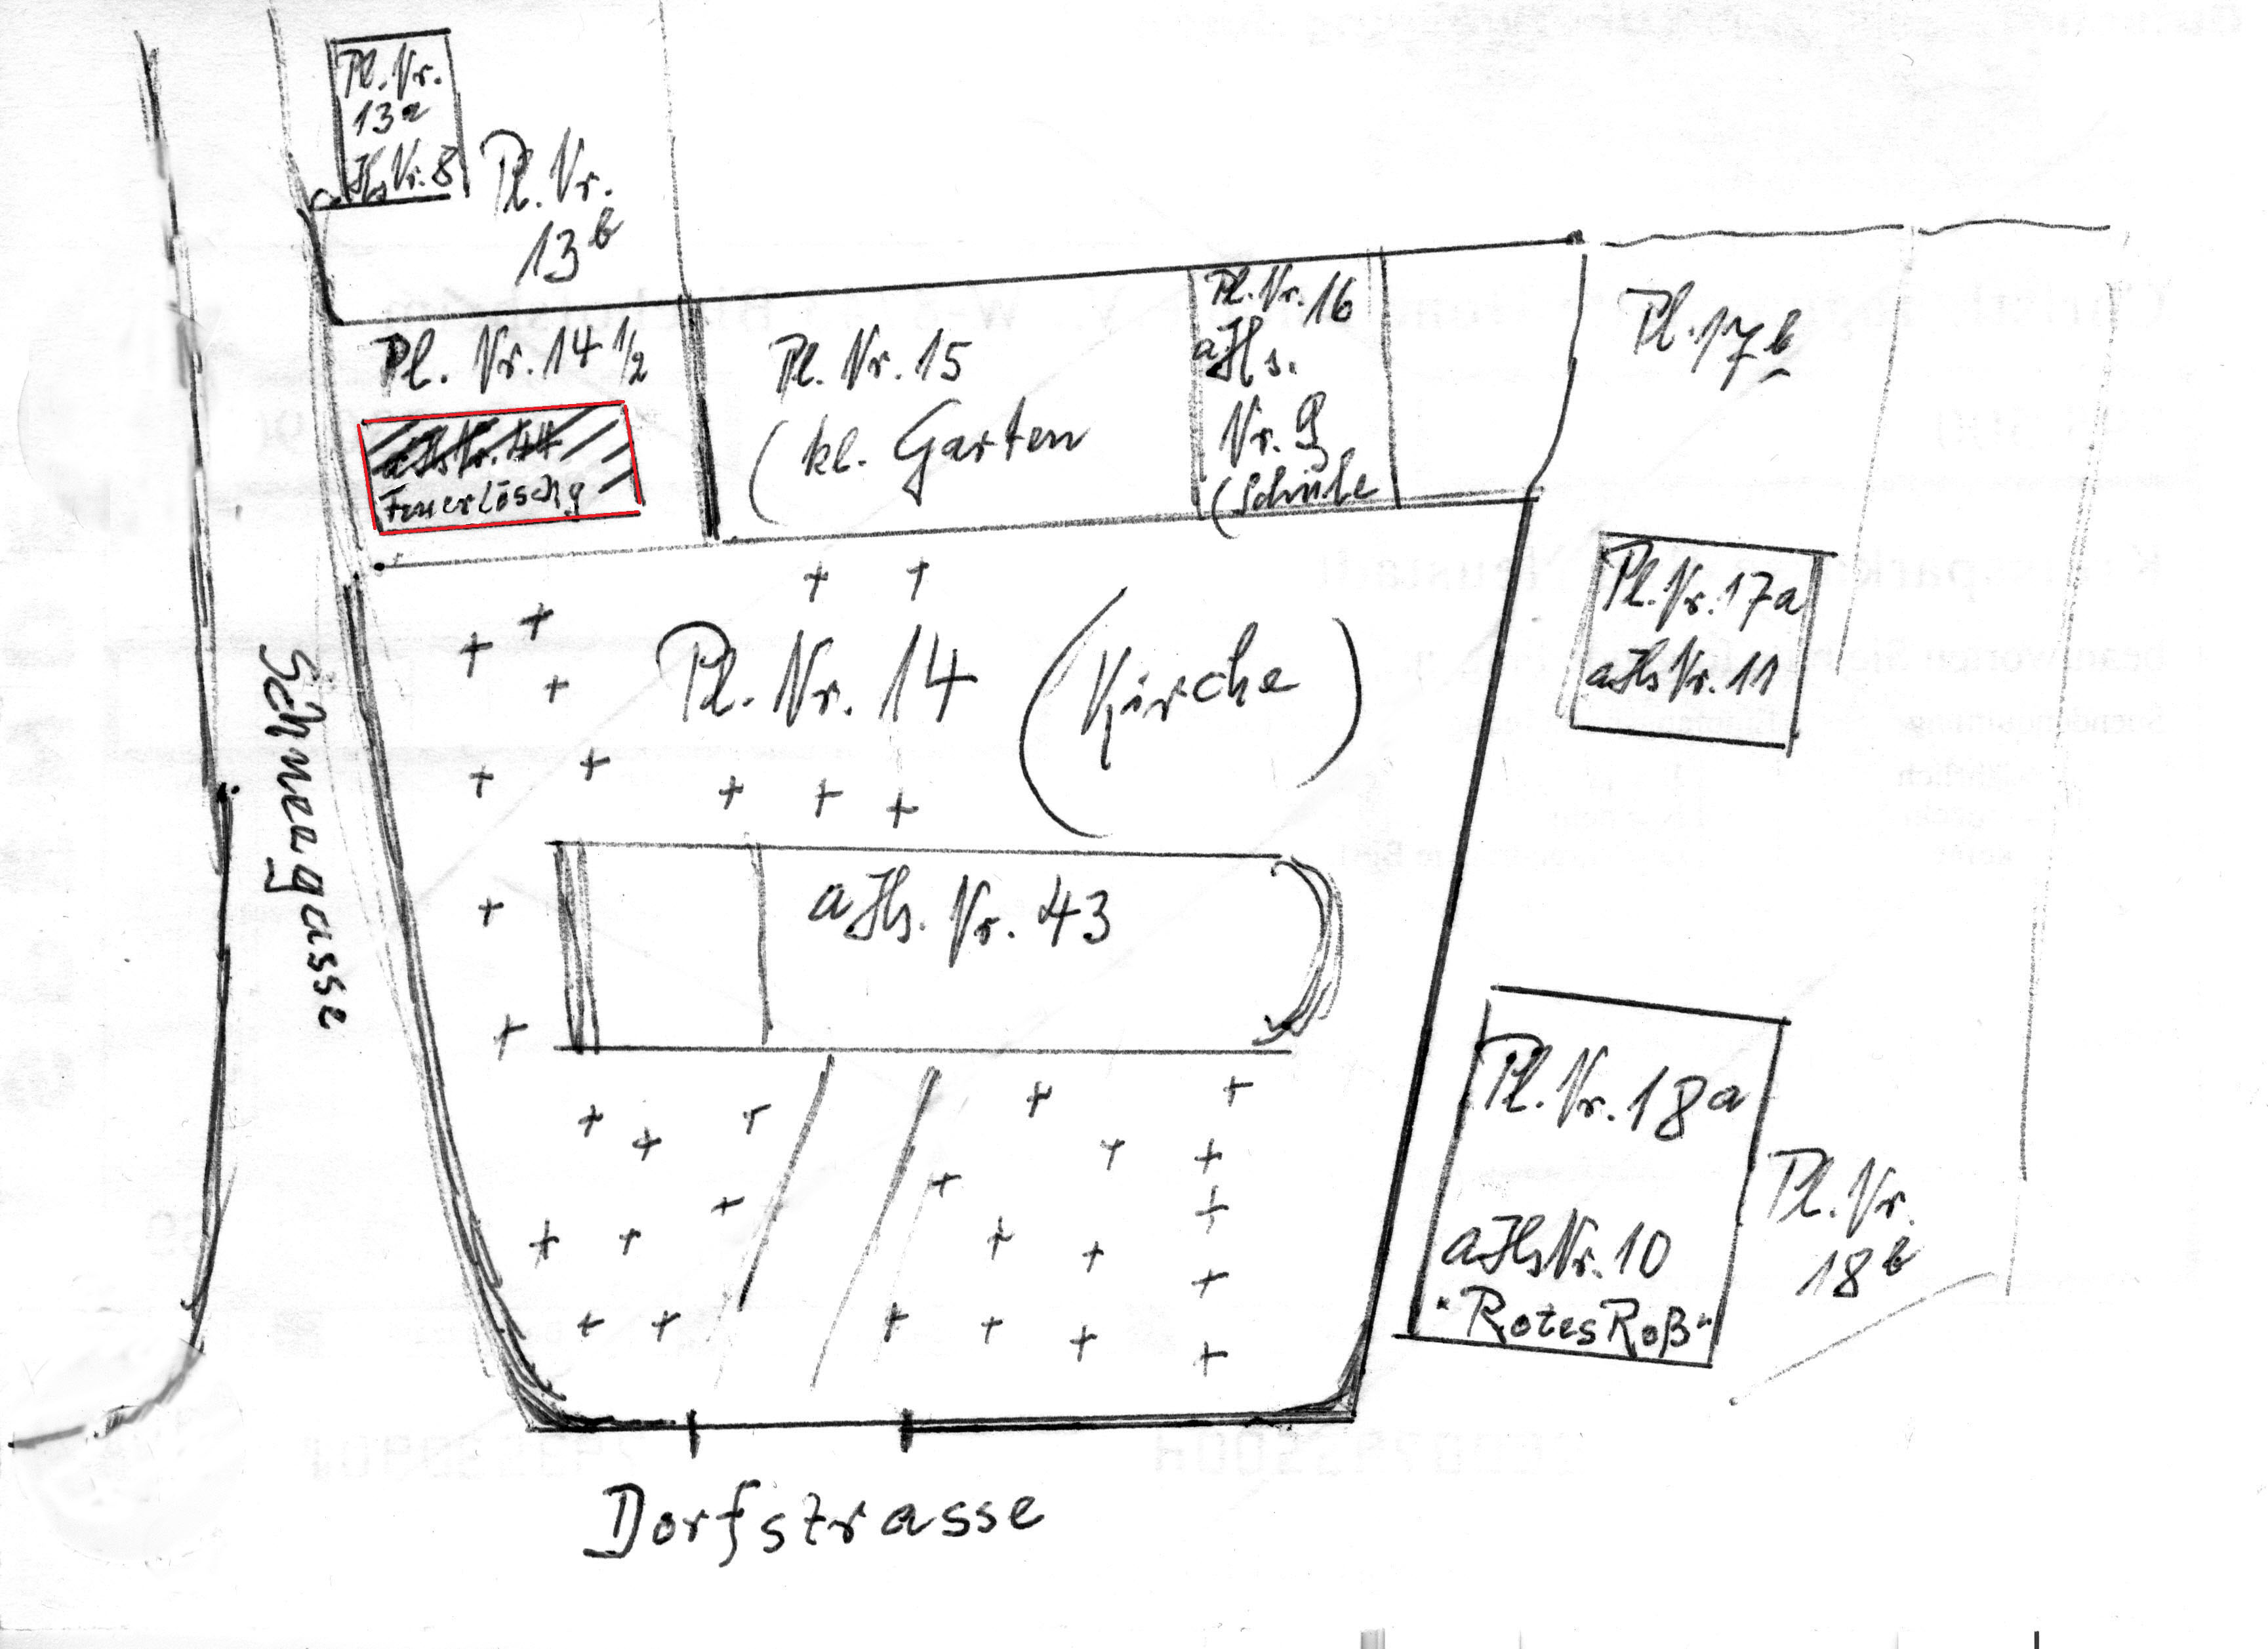 Pl. Nr.
13a
Hs Nr. 8
Pl. Nr.
13b
Pl. Nr. 14 1/2
aHsNr. 44
Feuerlöschg
Pl. Nr. 15
(kl. Garten
Pl. Nr. 16
aHs.
Nr. 9
(Schule
Pl. 17b
Pl. Nr. 17a
aHsNr. 11
Pl. Nr. 14 (Kirche)
aHs. Nr. 43
Schneegasse
Pl. Nr. 18a
aHsNr. 10
"Rotes Roß"
Pl. Nr.
18b
Dorfstrasse